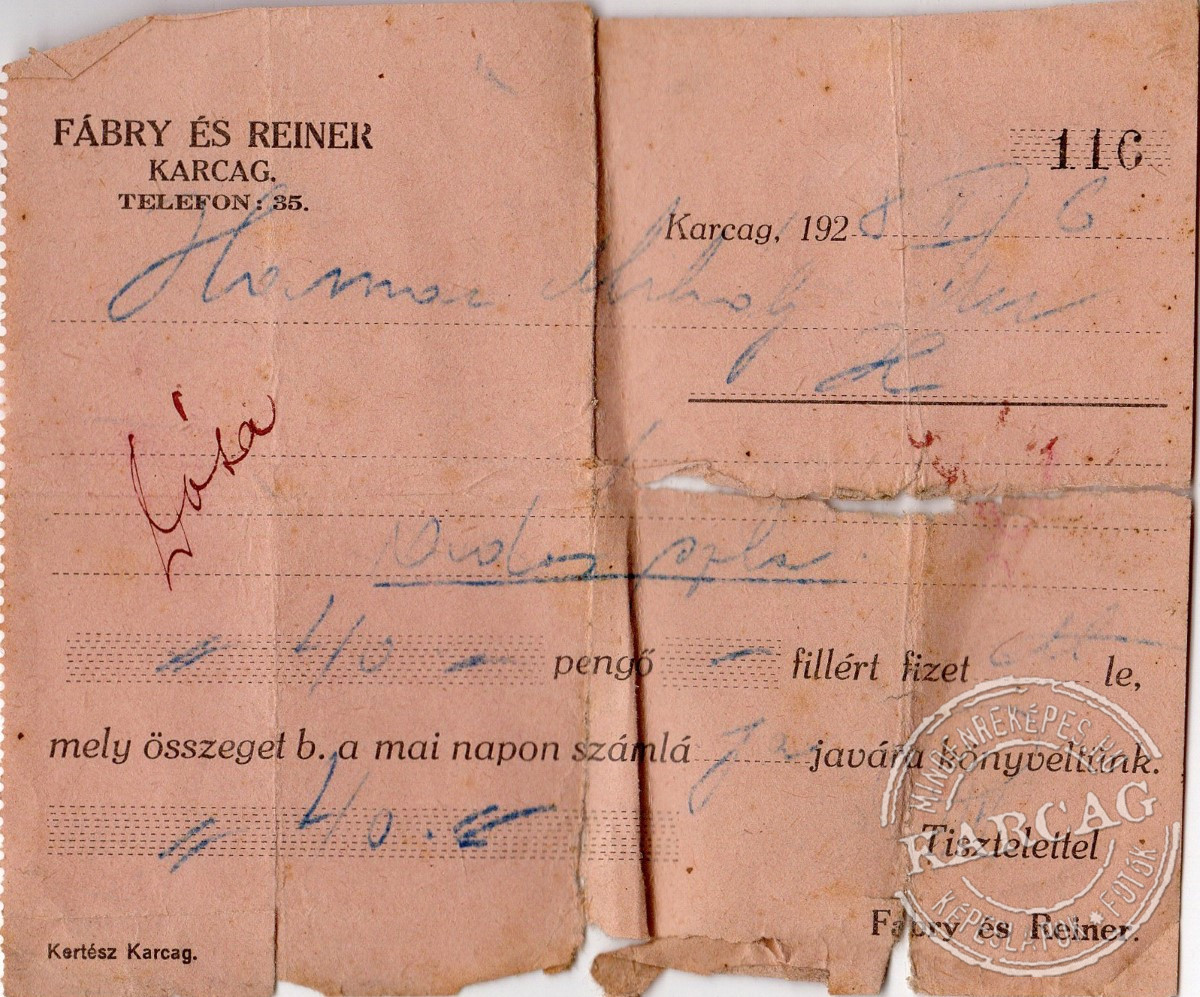 FÁBRY ÉS REINER
KARCAG.
TELEFON: 35.
116
Karcag, 1928 6
Dósa
40 pengő - fillért fizet le,
mely összeget b. a mai napon számlá javára könyveltünk.
40.
Tisztelettel
Fábry és Reiner.
Kertész Karcag.
MINDENREKÉPES.HU
KARCAG
KÉPESLAPOK * FOTÓK